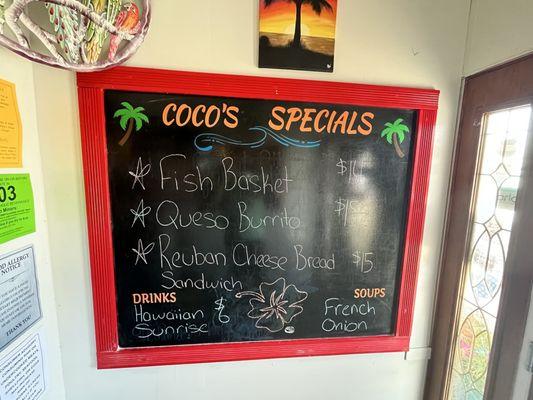 COCO'S SPECIALS
Fish Basket $14
Queso Burrito
Reuban Cheese Bread $15
Sandwich
DRINKS
Hawaiian $6
Sunrise
SOUPS
French
Onion
03
OOD ALLERGY
NOTICE